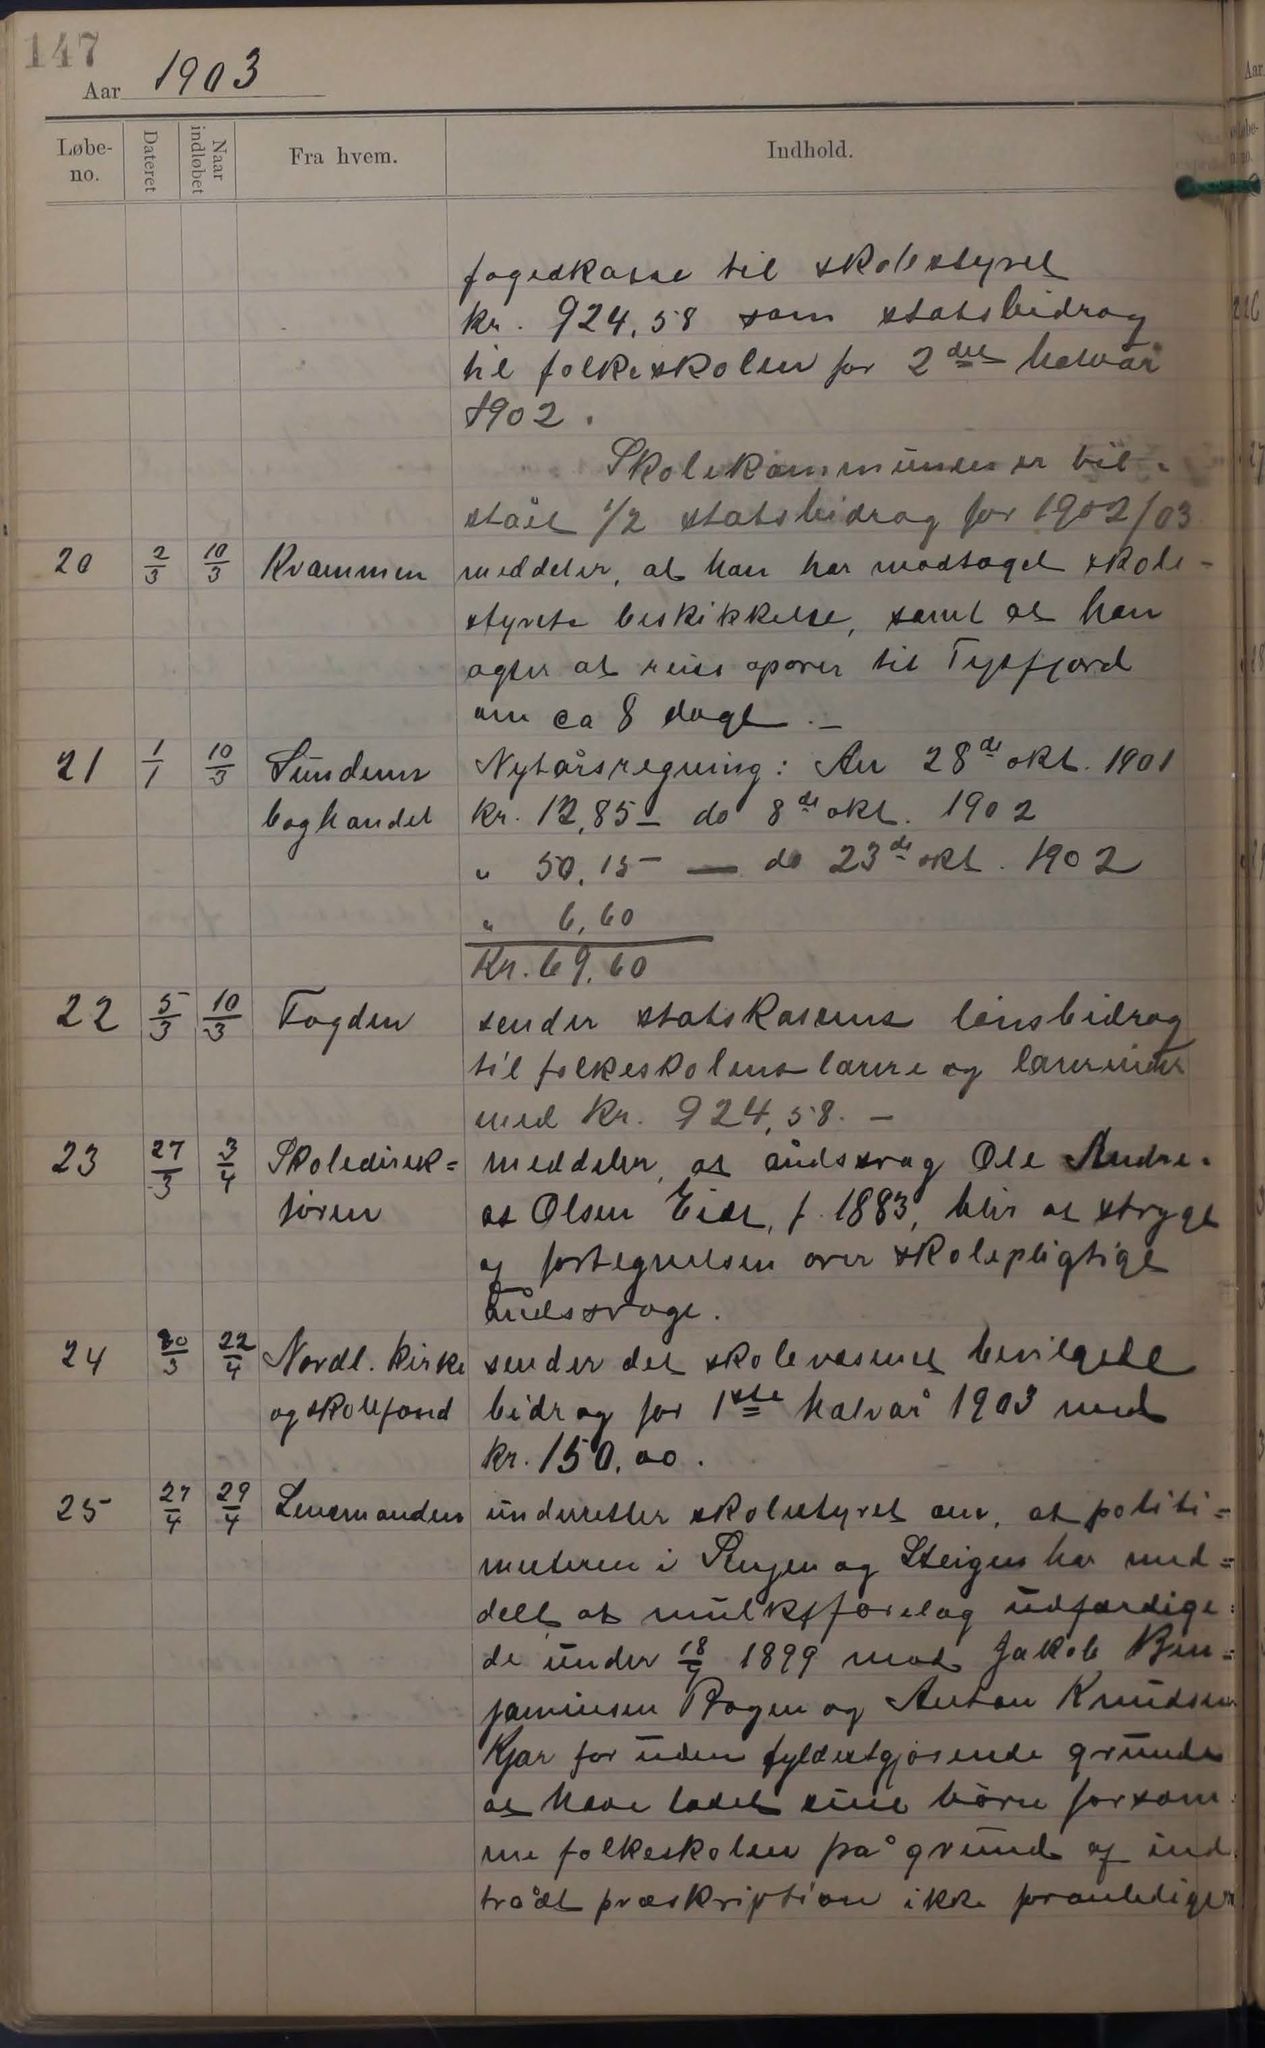 147
Aar 1903
Løbe-no. Dateret Naar indløbet Fra hvem. Indhold.
fogedkasse til skolestyret
kr. 924,58 som statsbidrag
til folkeskolen for 2det halvår
1902.
Skolekommunen er til-
stået 1/2 statsbidrag for 1902/03
20 2/3 10/3 Kvammen meddeler, at han har modtaget skole-
styrets beskikkelse, samt at han
agter at reise opover til Tysfjord
om ca 8 dage. –
21 1/1 10/3 Sundems Nytårsregning: Au 28de okt. 1901
boghandel kr. 12,85 – do 8de okt. 1902
" 50,15 — do 23de okt. 1902
" 6,60
Kr. 69,60
22 5/3 10/3 Fogden sender statskassens lönsbidrag
til folkeskolens lærere og lærerinder
med kr. 924,58. –
23 27/3 3/4 Skoledirek= meddeler, at åndssvag Ole Andre-
tören as Olsen Eide, f. 1883, blir at stryge
af fortegnelsen over skolepligtige
åndssvage.
24 20/3 22/4 Nordl. kirke sender det skolevæsenet bevilgede
og skolefond bidrag for 1ste halvår 1903 med
kr. 150,00.
25 27/4 29/4 Lensmanden underretter skolestyret om, at politi=
mesteren i Senjen og Steigen har med=
delt at mulktforelæg udfærdige=
de under 18/7 1899 mod Jakob Ben=
jaminsen Bogen og Anton Knudsen
Kjær for uden fyldestgjørende grunde
at have ladet sine børn forsøm=
me folkeskolen på grund af ind
trådt præskription ikke foranlediger